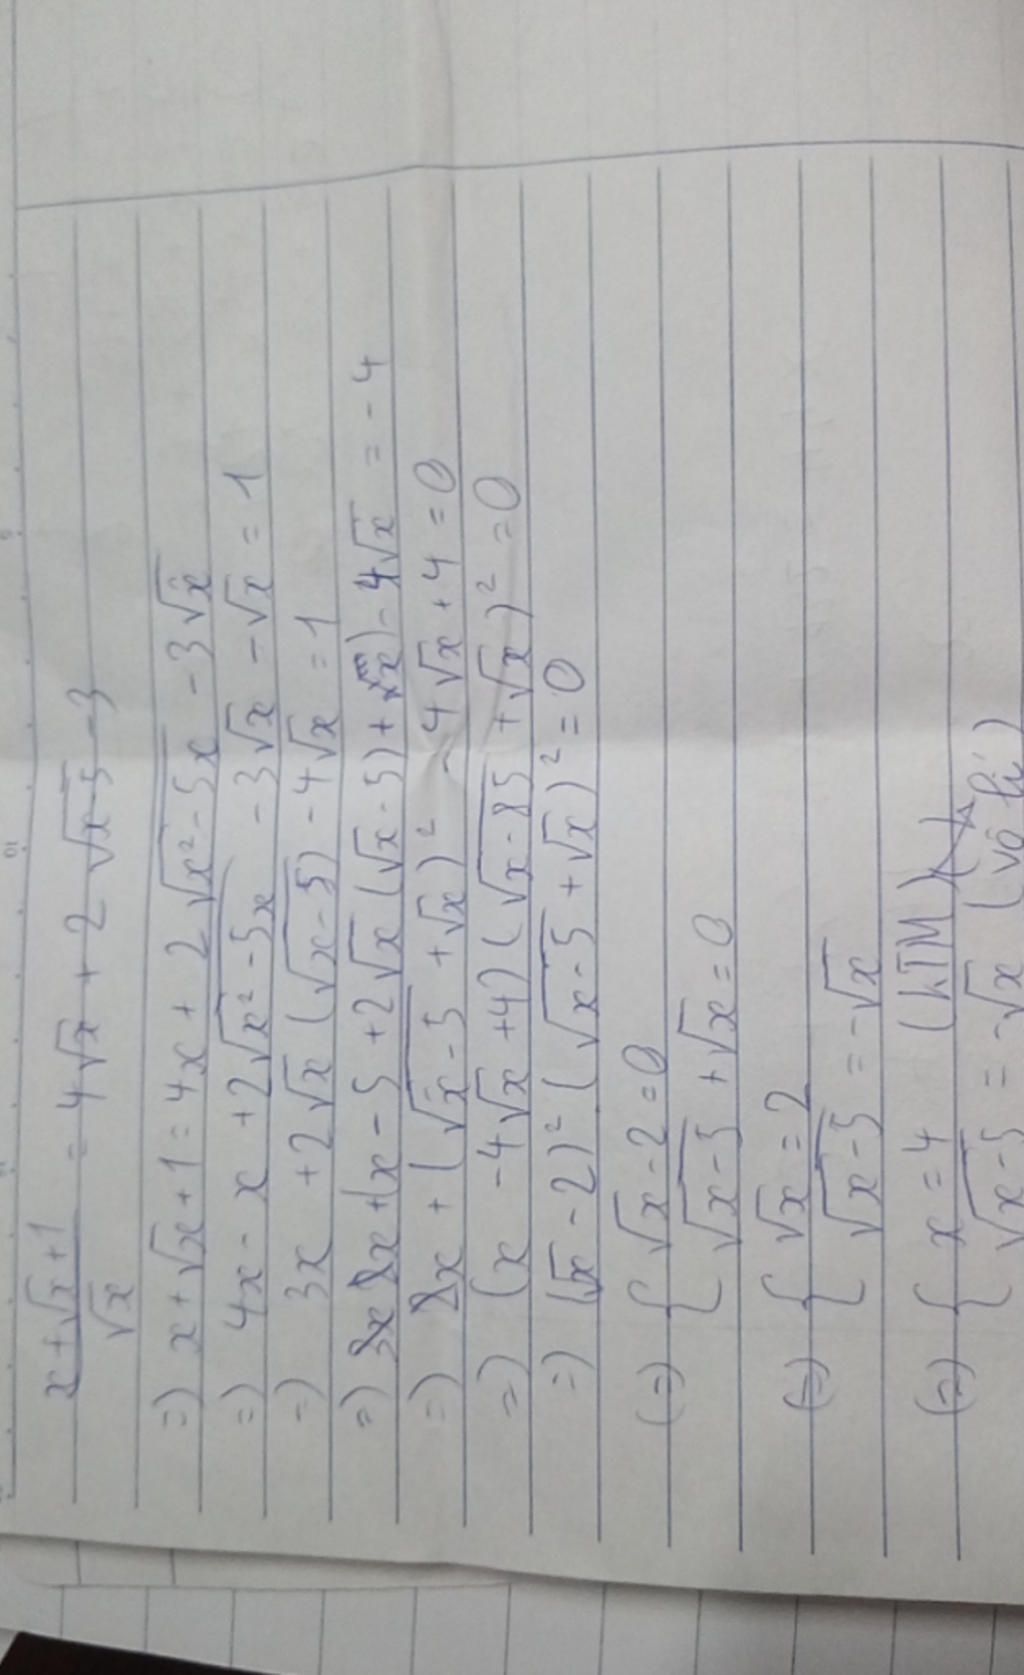 x+√x+1 / √x = 4√x + 2√x-5 - 3
=) x+√x+1 = 4x + 2√x²-5x - 3√x
=) 4x - x + 2√x²-5x - 3√x - √x = 1
=) 3x + 2√x (√x-5) - 4√x = 1
=) x + (x - 5 + 2√x (√x-5) + x) - 4√x = -4
=) x + (√x-5 + √x)² - 4√x + 4 = 0
=) (x - 4√x + 4) (√x-5 + √x)² = 0
=) (√x - 2)² (√x-5 + √x)² = 0
(=) { √x - 2 = 0
√x-5 + √x = 0
(=) { √x = 2
√x-5 = -√x
(=) { x = 4 (KTM)
√x-5 = -√x (vô lí)